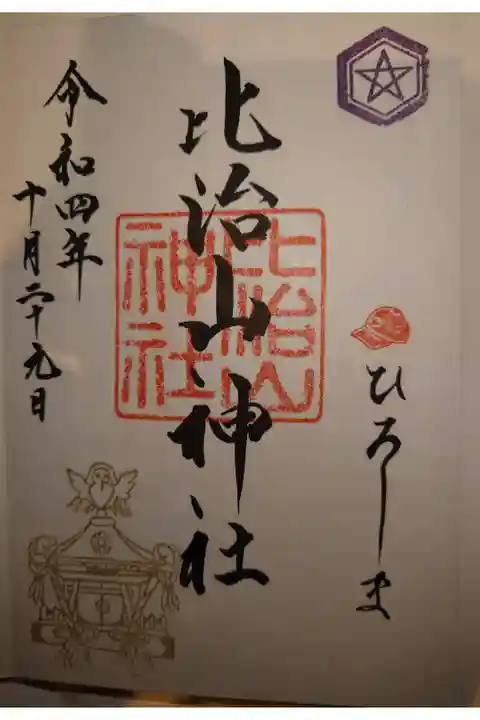 ひろしま
比治山神社
比治山
神社
令和四年
十月二十九日